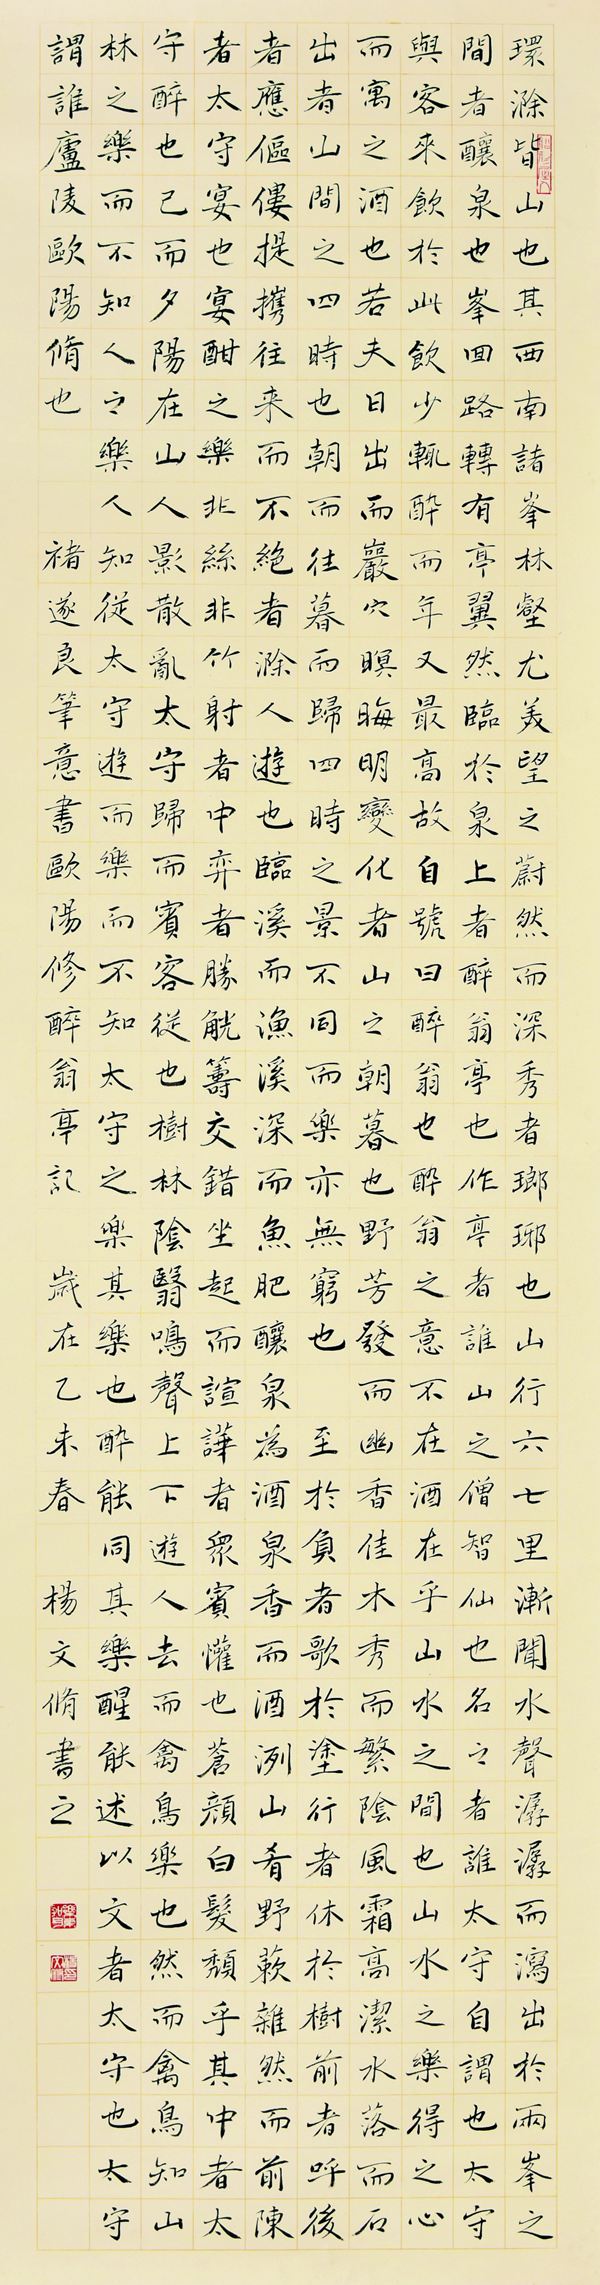 環滁皆山也其西南諸峯林壑尤美望之蔚然而深秀者瑯琊也山行六七里漸聞水聲潺潺而瀉出於兩峯之
間者釀泉也峯回路轉有亭翼然臨於泉上者醉翁亭也作亭者誰山之僧智仙也名之者誰太守自謂也太守
與客來飲於此飲少輒醉而年又最高故自號曰醉翁也醉翁之意不在酒在乎山水之間也山水之樂得之心
而寓之酒也若夫日出而巖穴暝晦明變化者山之朝暮也野芳發而幽香佳木秀而繁陰風霜高潔水落而石
出者山間之四時也朝而往暮而歸四時之景不同而樂亦無窮也 至於負者歌於塗行者休於樹前者呼後
者應傴僂提攜往来而不絶者滁人遊也臨溪而漁溪深而魚肥釀泉為酒泉香而酒洌山肴野蔌雜然而前陳
者太守宴也宴酣之樂非絲非竹射者中弈者勝觥籌交錯坐起而諠譁者衆賓懽也蒼顏白髮頹乎其中者太
守醉也已而夕陽在山人影散亂太守歸而賓客從也樹林陰翳鳴聲上下遊人去而禽鳥樂也然而禽鳥知山
林之樂而不知人之樂人知從太守遊而樂而不知太守之樂其樂也醉能同其樂醒能述以文者太守也太守
謂誰廬陵歐陽脩也 褚遂良筆意書歐陽修醉翁亭記 歲在乙未春 楊文脩書之